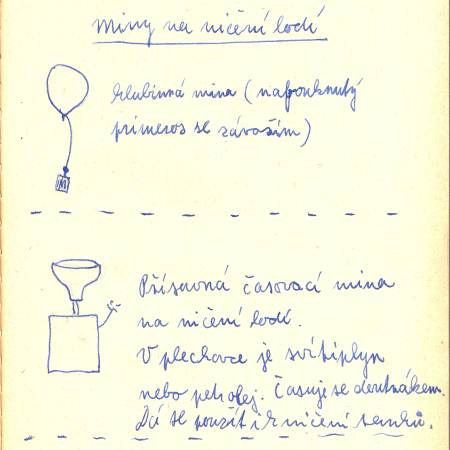 Miny na ničení lodí
hlubinná mina (nafouknutý
primeros se závažím)
Přísavná časovací mina
na ničení lodí.
V plechovce je svítiplyn
nebo petrolej. Časuje se doutnákem.
Dá se použít i k ničení tanků.